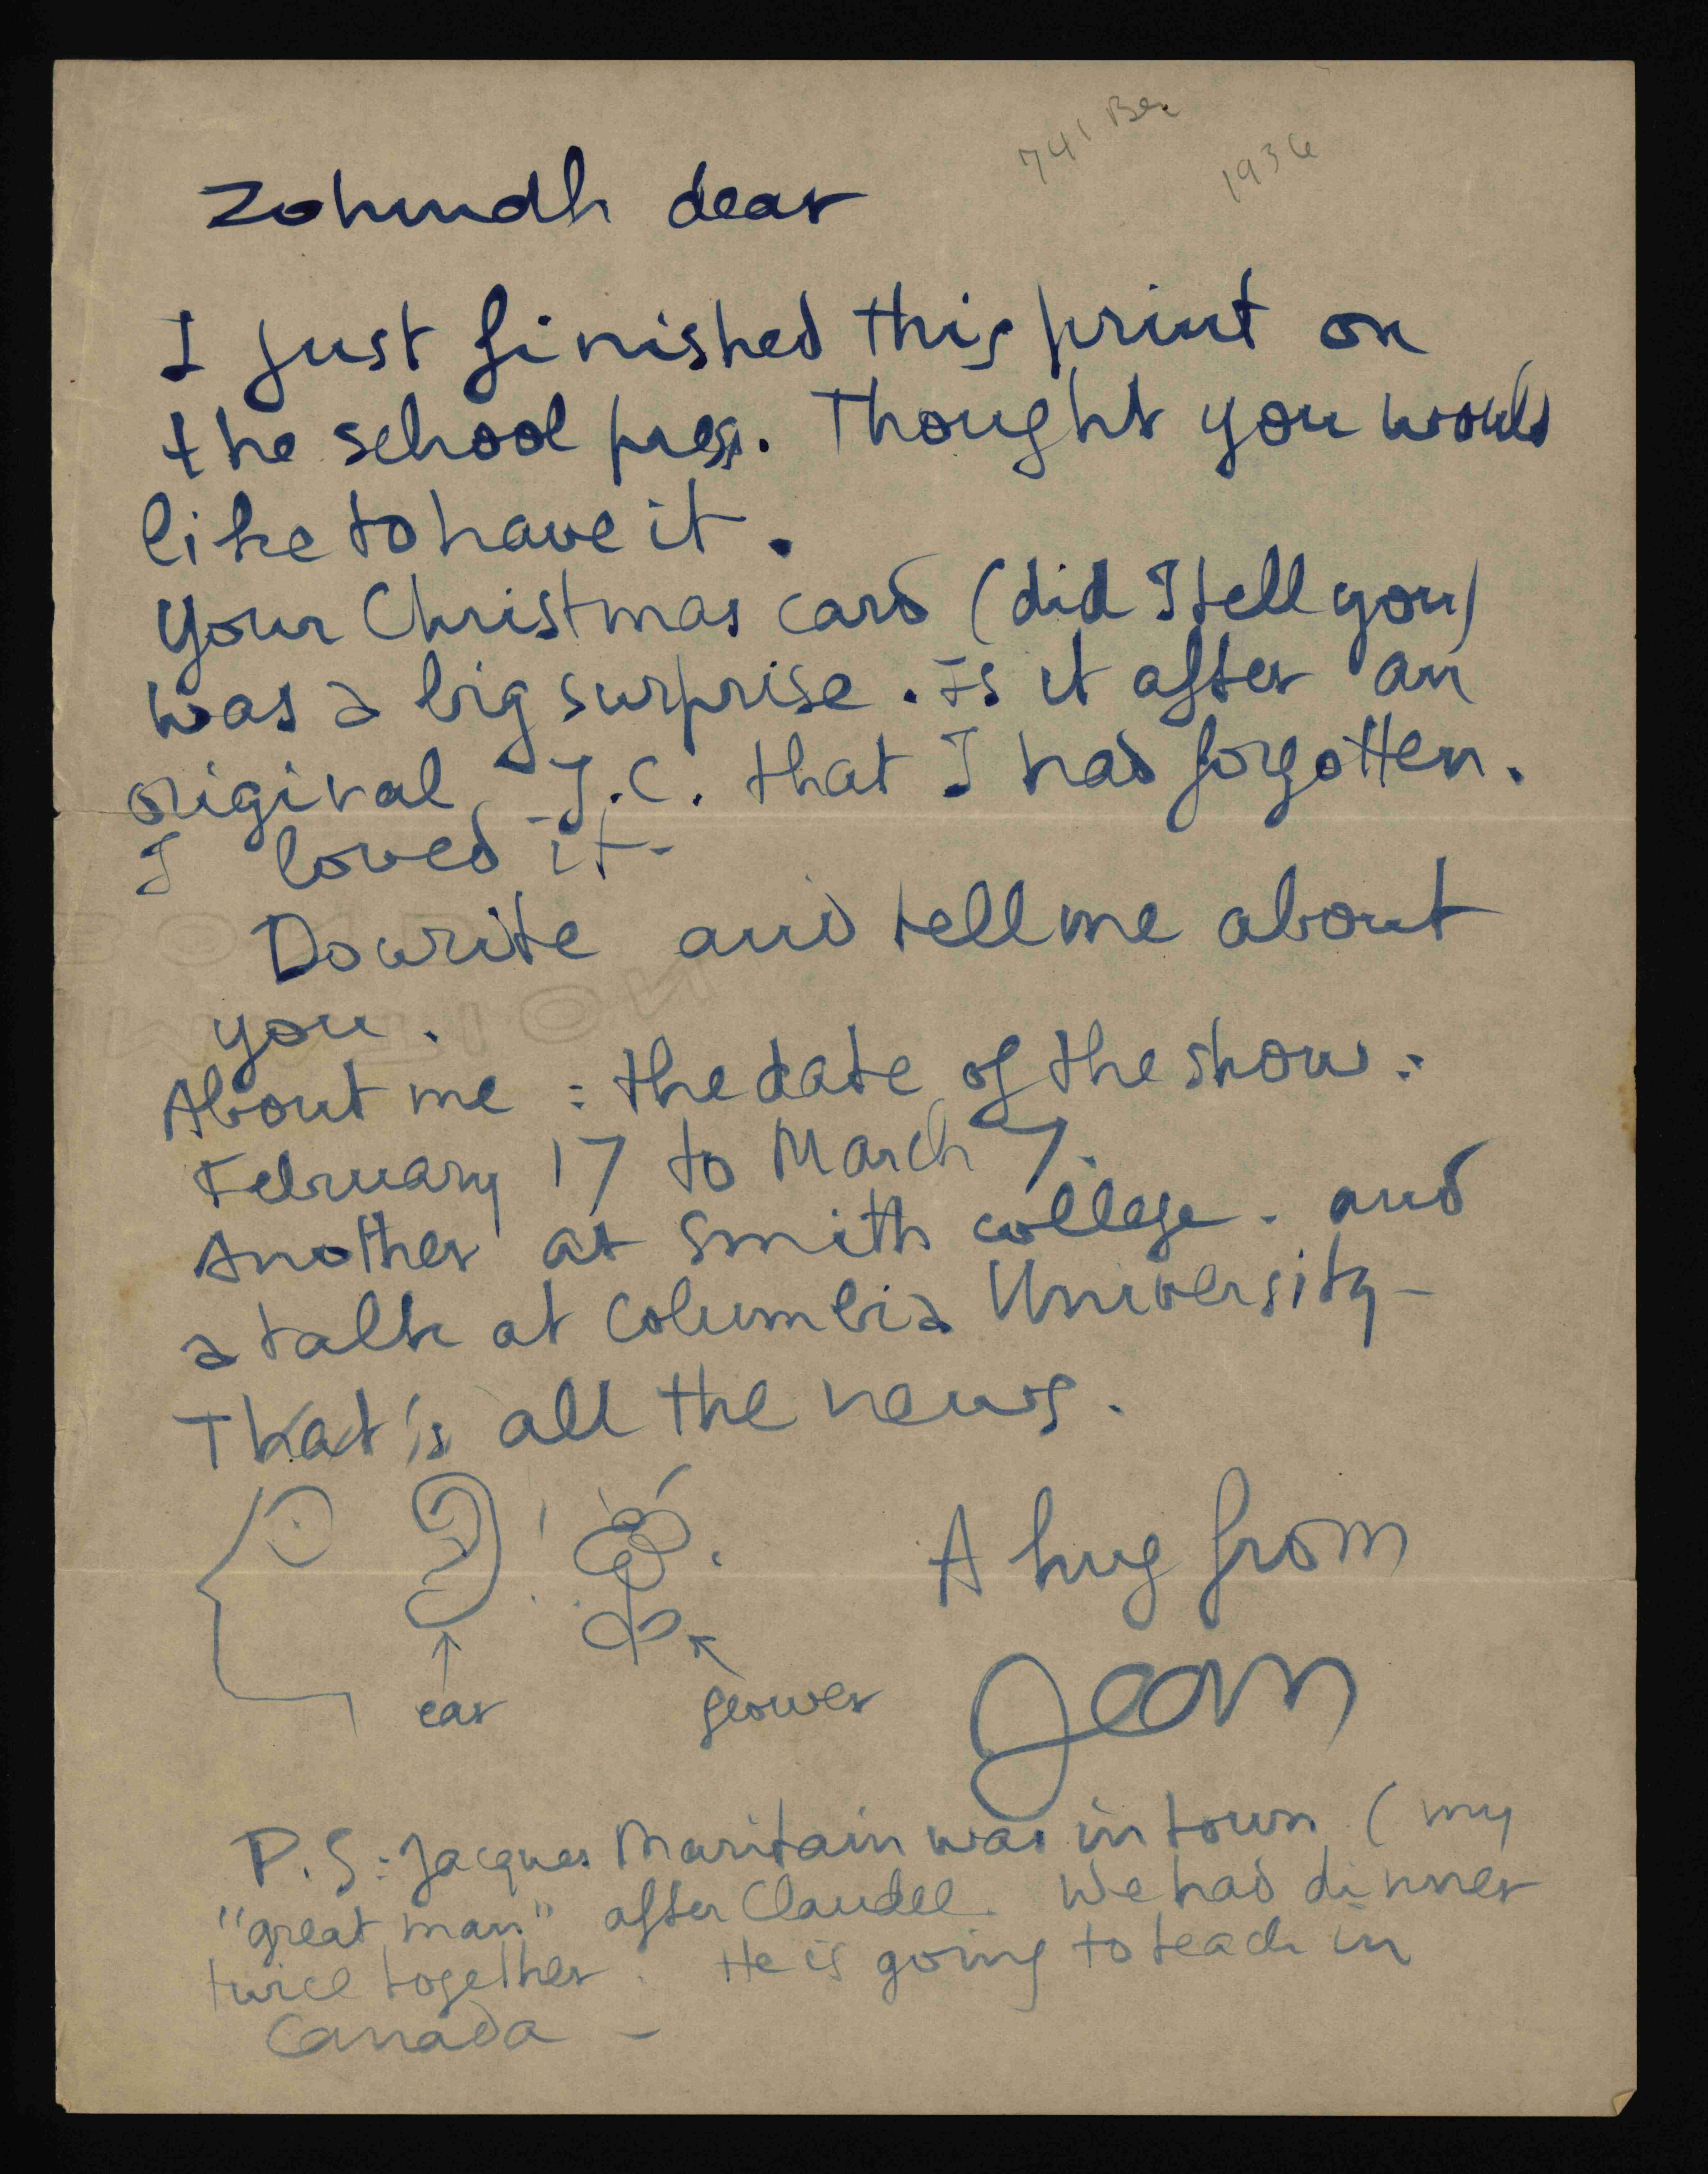 741 Bex
1936
Zohmah dear
I just finished this print on
the school press. Thought you would
like to have it.
Your Christmas card (did I tell you)
was a big surprise. Is it after an
original J.C. that I had forgotten.
I loved it.
Do write and tell me about
you.
About me : the date of the show :
February 17 to March 7.
Another at Smith college. and
a talk at Columbia University –
That's all the news.
A hug from
ear
flower
Jean
P.S: Jacques Maritain was in town (my
"great man" after Claudel. We had dinner
twice together. He is going to teach in
Canada –